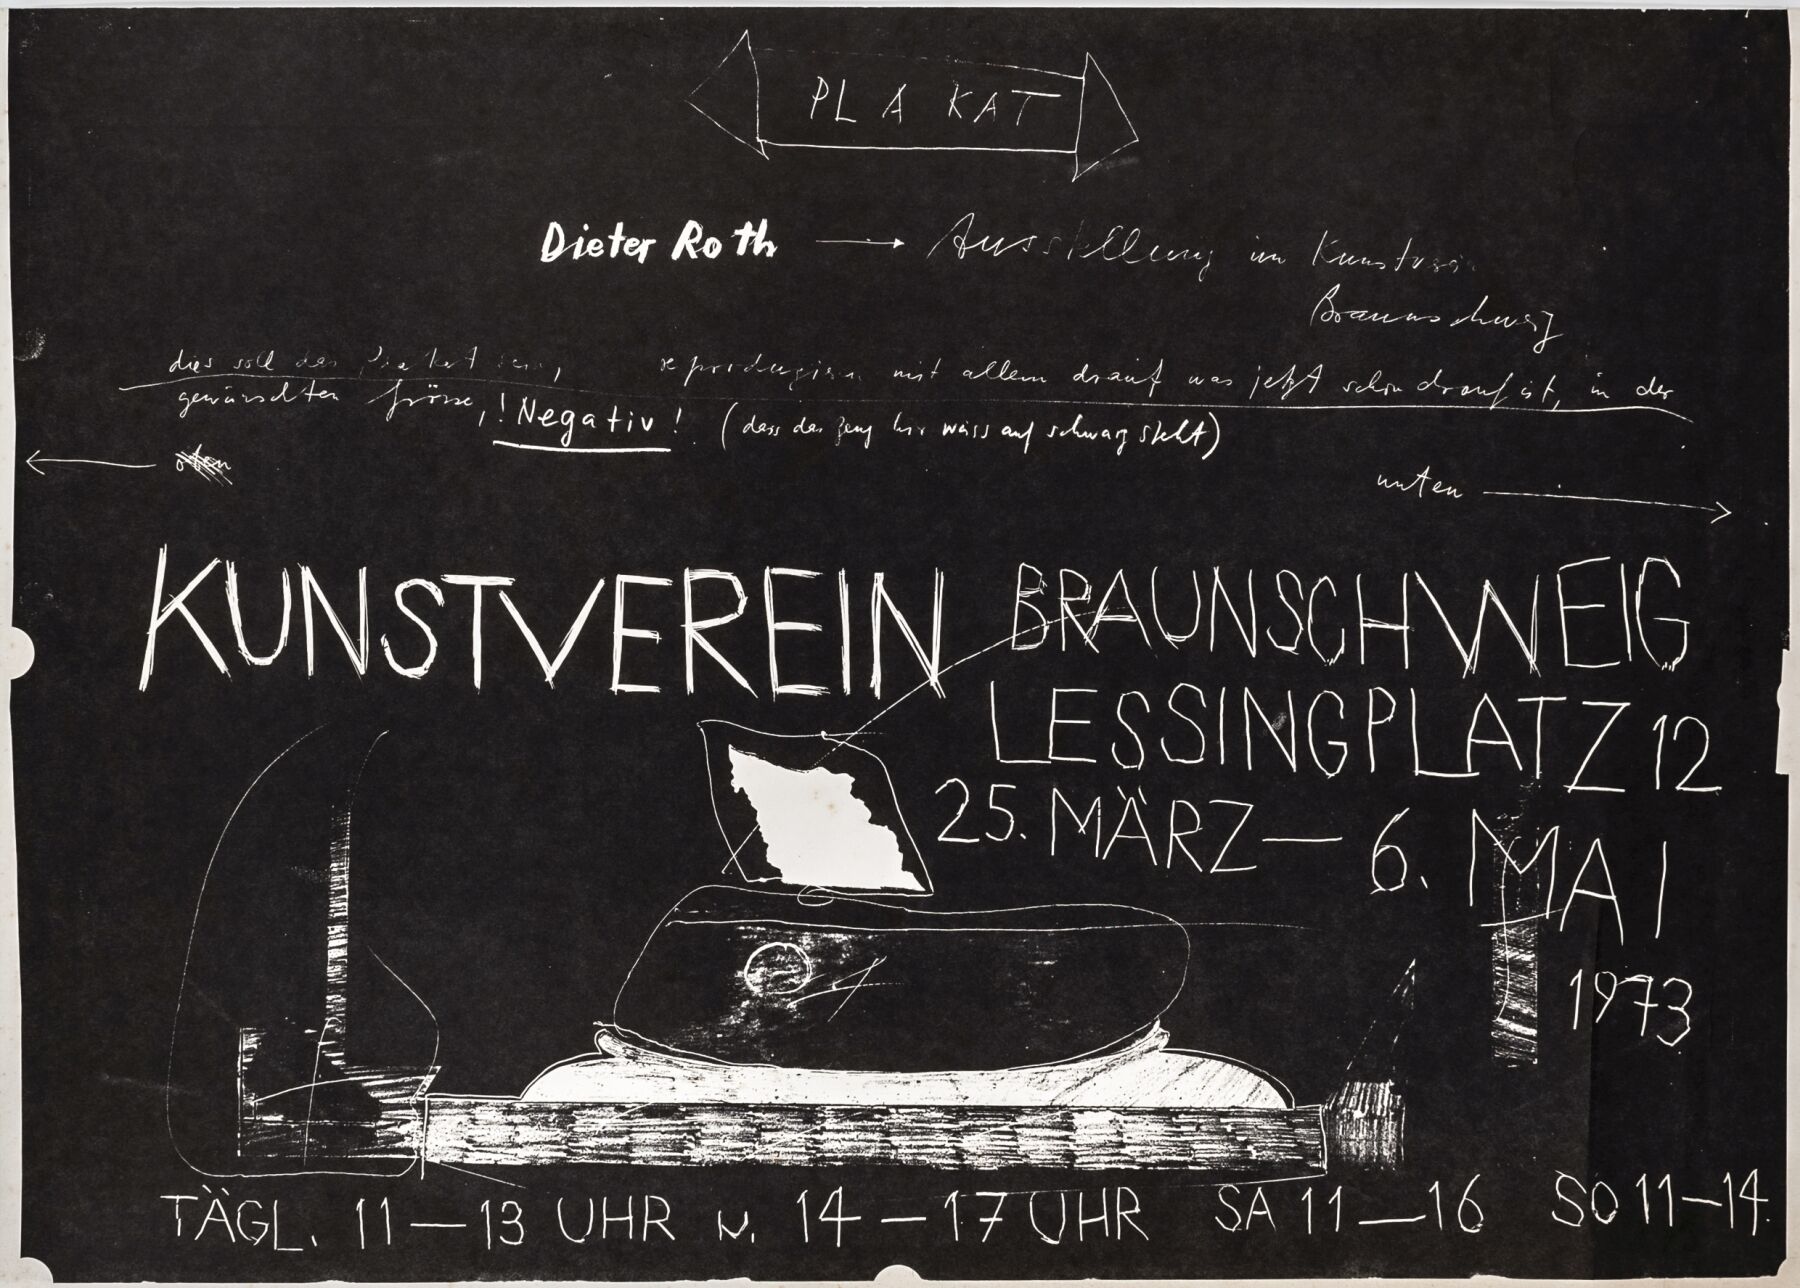 PLAKAT
Dieter Roth → Ausstellung im Kunstverein
Braunschweig
dies soll das Plakat sein, reproduzieren mit allem drauf was jetzt schon drauf ist, in der
gewünschten Grösse, ! Negativ ! (dass das Zeug hier weiss auf schwarz steht)
← oben
unten →
KUNSTVEREIN BRAUNSCHWEIG
LESSINGPLATZ 12
25. MÄRZ — 6. MAI
1973
TÄGL. 11—13 UHR u. 14—17 UHR SA 11—16 SO 11—14.